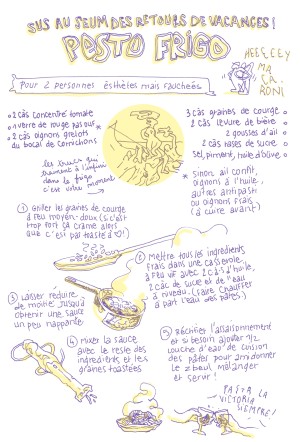 SUS AU SEUM DES RETOURS DE VACANCES !
PESTO FRIGO
HEEELLEY
MA
CA
RONI
Pour 2 personnes esthètes mais fauchées
2 càs concentré tomate
1 verre de rouge pas ouf
2 càs oignons grelots
du bocal de Cornichons
3 càs graines de courge
2 càs levure de bière
2 gousses d'ail
2 càs rases de sucre
Sel, piment, huile d'olive
les trucs qui
traînent à l'infini
dans le frigo
c'est votre moment
* Sinon ail confit,
oignons à l'huile,
autres antipasti
ou oignons frais
(à cuire avant)
① Griller les graines de courge
à feu moyen-doux (si c'est
trop fort ça crame alors
que c'est pas toasté ♡!)
② Mettre tous les ingrédients
frais dans une casserole,
à feu vif avec 2 càs d'huile,
2 càc de sucre et de l'eau
à niveau. (faire chauffer
à part l'eau des pâtes.)
③ Laisser réduire
de moitié jusqu'à
obtenir une sauce
un peu nappante.
④ Mixer la sauce
avec le reste des
ingrédients et les
graines toastées
⑤ Rectifier l'assaisonnement
et si besoin ajouter 1/2
louche d'eau de cuisson
des pâtes pour amidonner
le z'beul, mélanger
et servir !
PASTA LA
VICTORIA
SIEMPRE!